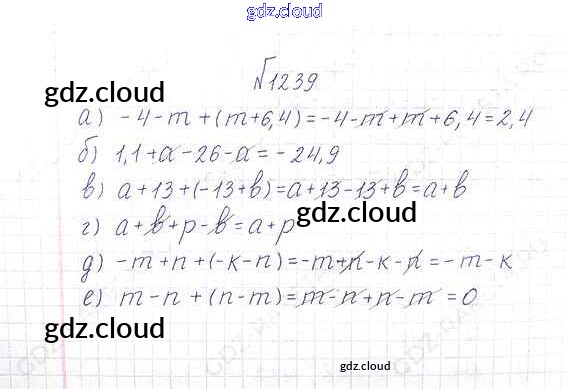 gdz.cloud
№1239
gdz.cloud
а) -4-m+(m+6,4)=-4-m+m+6,4=2,4
б) 1,1+a-26-a=-24,9
в) a+13+(-13+b)=a+13-13+b=a+b
г) a+b+p-b=a+p
gdz.cloud
д) -m+n+(-k-n)=-m+n-k-n=-m-k
е) m-n+(n-m)=m-n+n-m=0
gdz.cloud
gdz.cloud